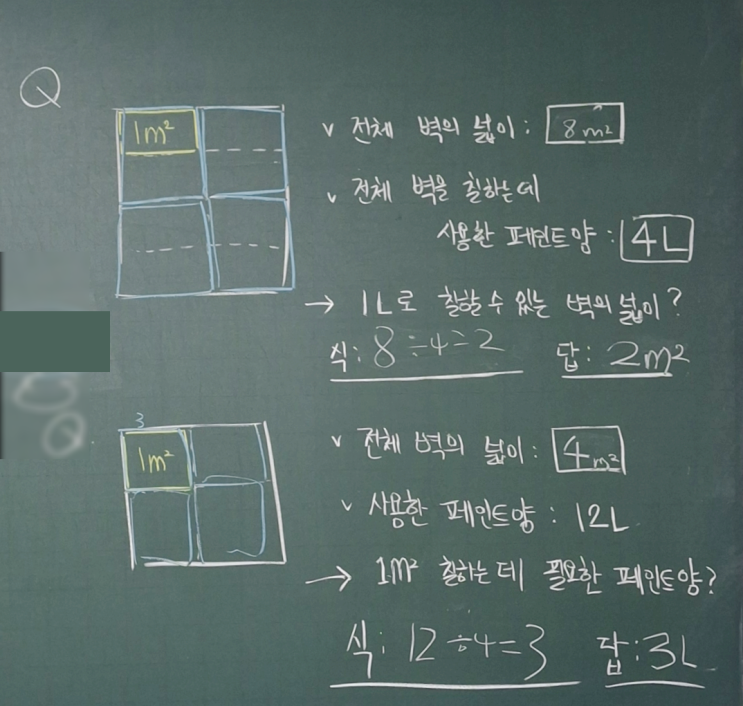 Q
1m²
v 전체 벽의 넓이 : 8m²
v 전체 벽을 칠하는데
사용한 페인트양 : 4L
→ 1L로 칠할 수 있는 벽의 넓이?
식 : 8÷4=2 답 : 2m²
3
1m²
v 전체 벽의 넓이 : 4m²
v 사용한 페인트양 : 12L
→ 1m² 칠하는데 필요한 페인트양?
식 : 12÷4=3 답 : 3L